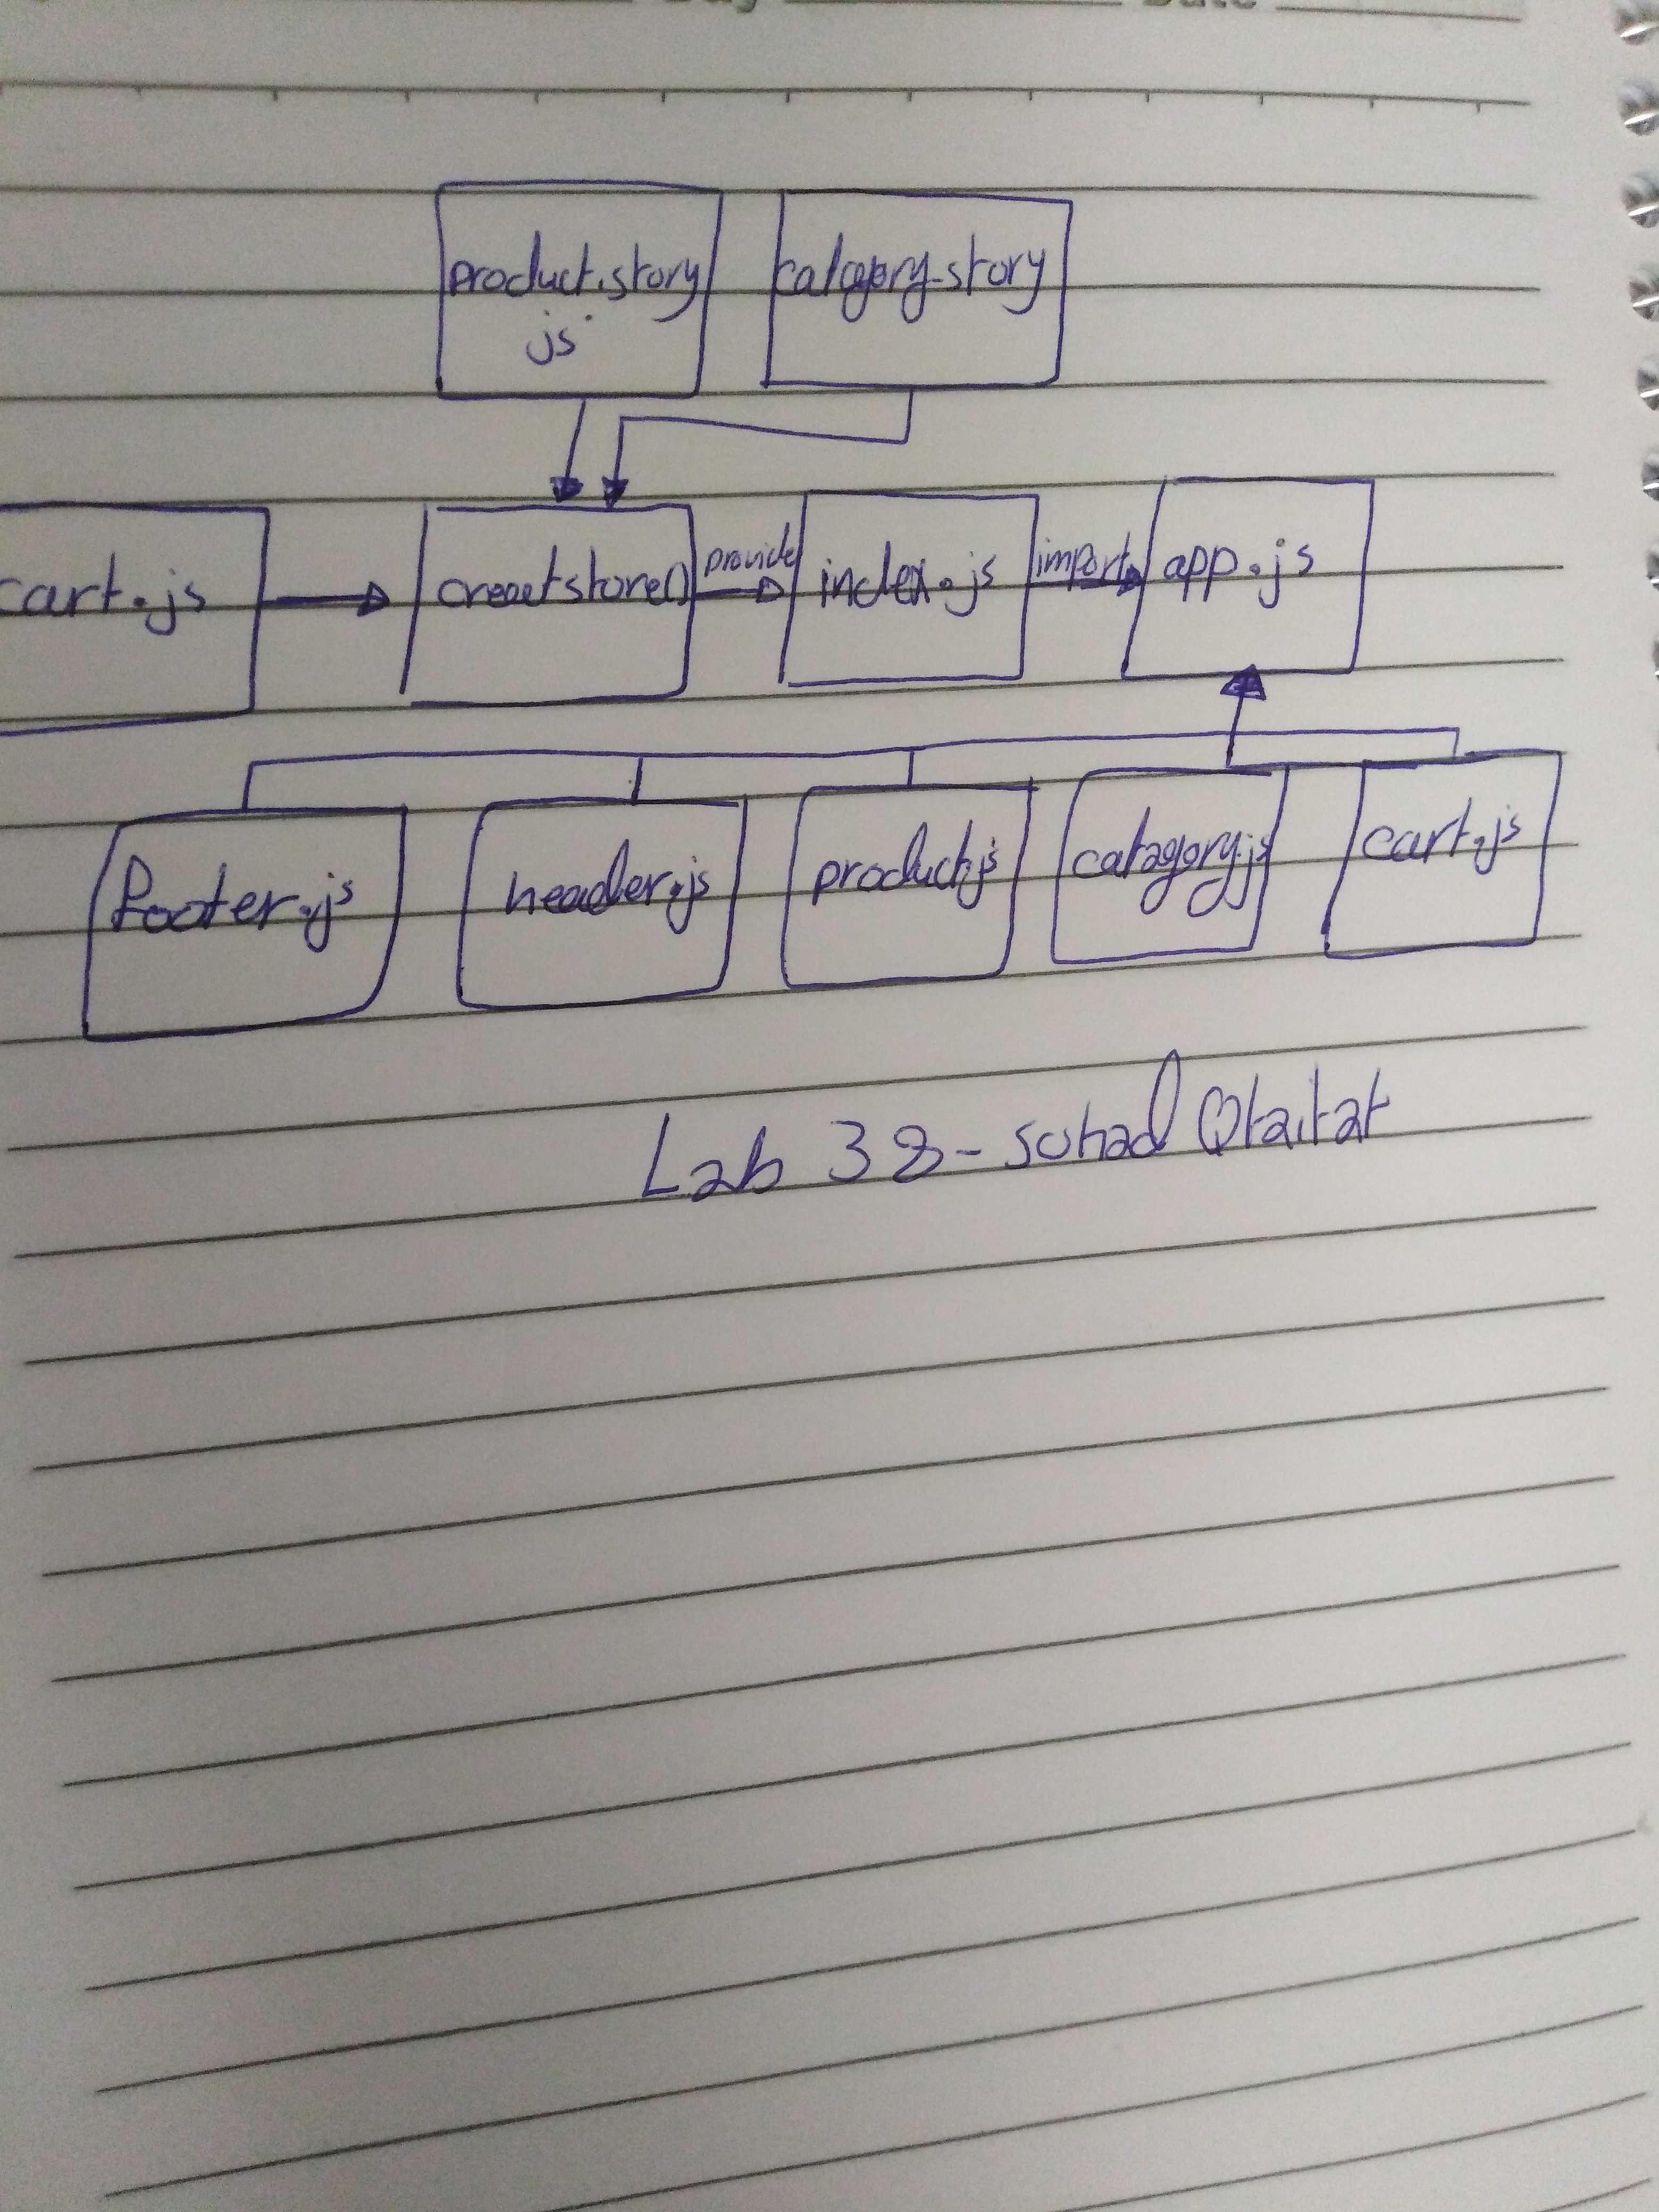 product.story
js
catgory-story
cart.js
creaetstore()
provide
index.js
import
app.js
footer.js
header.js
product.js
catagory.js
cart.js
Lab 38- suhad Qtaitat